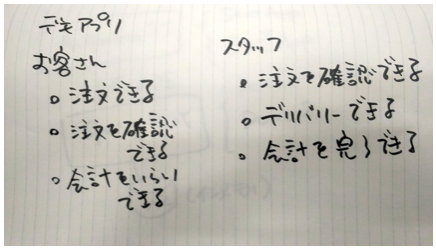 デモアプリ
お客さん
○ 注文できる
○ 注文を確認
できる
○ 会計をいらい
できる
スタッフ
○ 注文を確認できる
○ デリバリーできる
○ 会計を完了できる